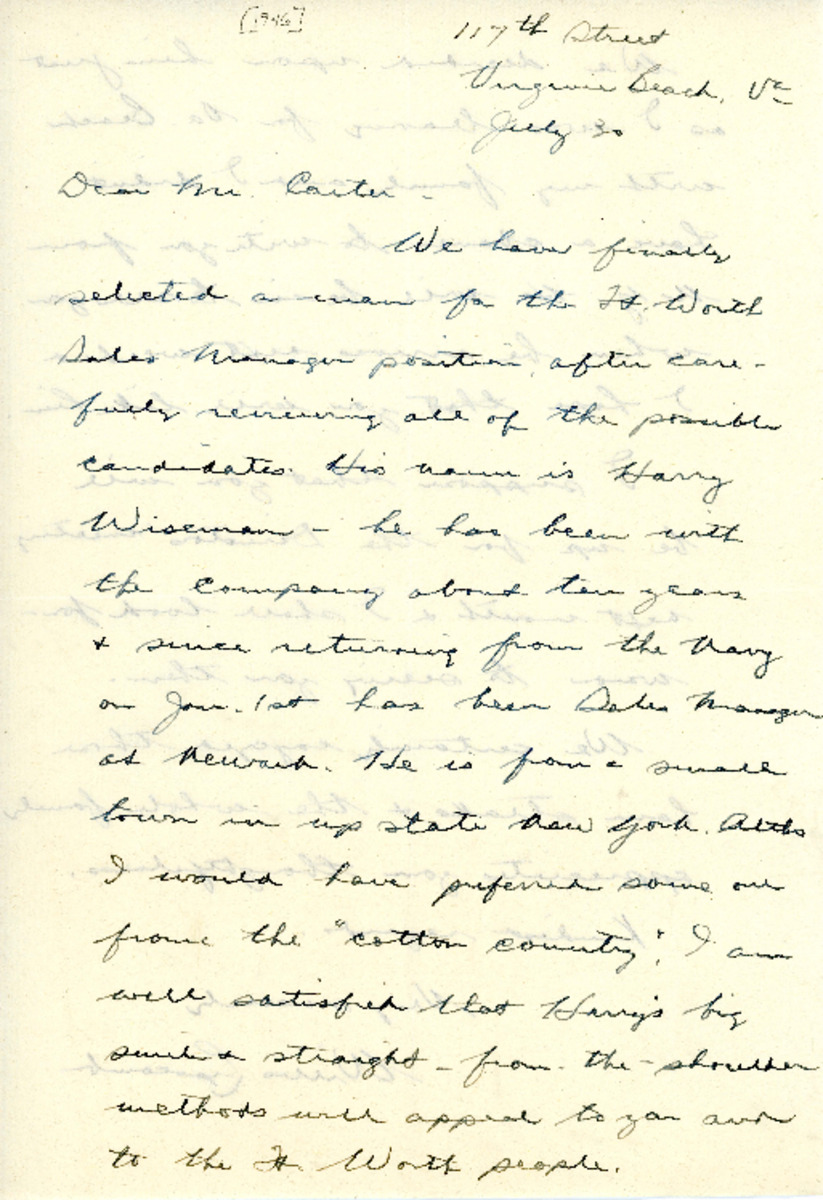 [1946]
117th Street
Virginia Beach, Va
July 30
Dear Mr. Carter -
We have finally
selected a man for the Ft. Worth
Sales Manager position, after care-
fully reviewing all of the possible
candidates. His name is Harry
Wiseman - he has been with
the company about ten years
& since returning from the Navy
on Jan. 1st has been Sales Manager
at Newark. He is from a small
town in up state New York. Altho
I would have preferred some one
from the "cotton country", I am
well satisfied that Harry's big
smile & straight-from-the-shoulder
methods will appeal to you and
to the Ft. Worth people.